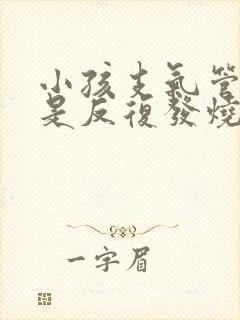 小孩支氣管
是反復發燒
一字眉